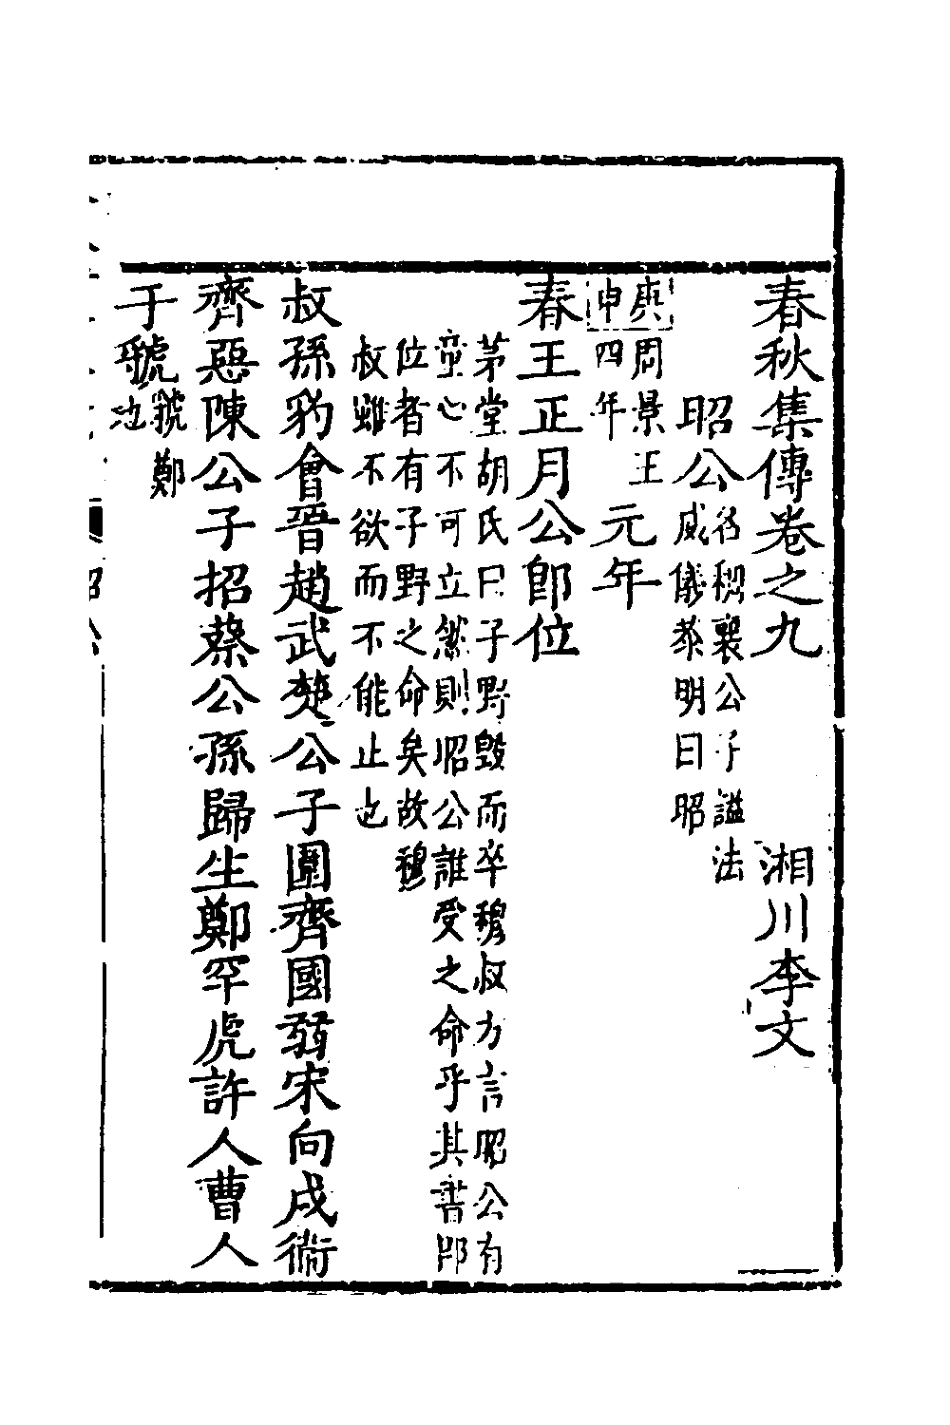 春秋集傳卷之九　湘川李文
昭公名稠襄公子謚法
威儀恭明曰昭
庚申周景王
四年元年
春王正月公即位
茅堂胡氏曰子野毀而卒穆叔方言昭公有
童心不可立然則昭公誰受之命乎其書即
位者有子野之命矣故穆
叔雖不欲而不能止也
叔孫豹會晉趙武楚公子圍齊國弱宋向戌衛
齊惡陳公子招蔡公孫歸生鄭罕虎許人曹人
于虢虢鄭
地
昭公